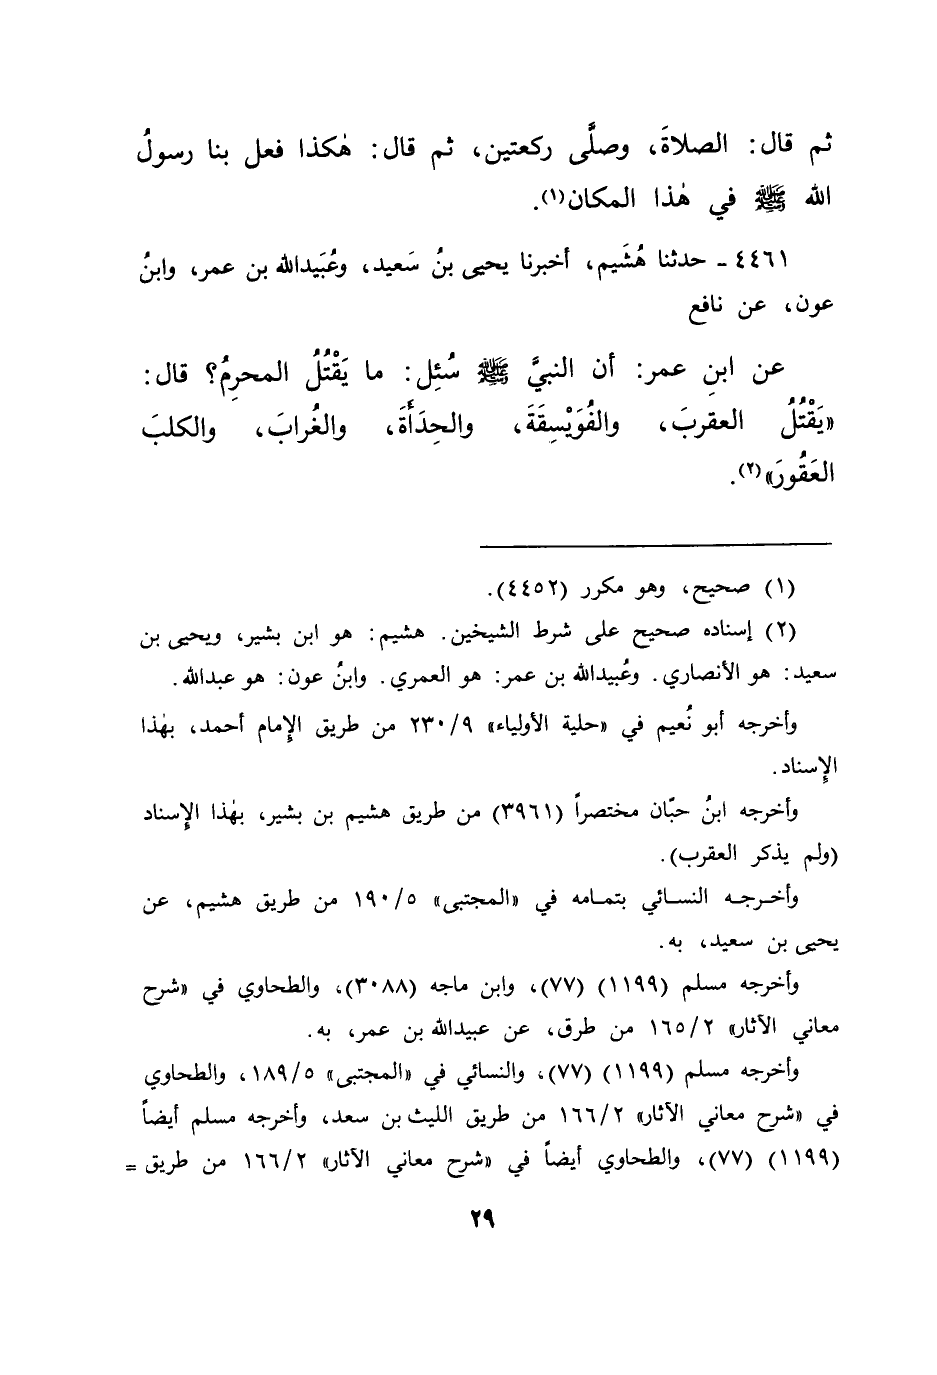 ثم قال: الصلاةَ، وصلَّى ركعتين، ثم قال: هٰكذا فعل بنا رسولُ
الله ﷺ في هٰذا المكان(١).
٤٤٦١ ـ حدثنا هُشَيم، أخبرنا يحيى بنُ سَعيد، وعُبَيدالله بن عمر، وابنُ
عون، عن نافع
عن ابنِ عمر: أن النبيَّ ﷺ سُئِل: ما يَقْتُلُ المحرِمُ؟ قال:
«يَقْتُلُ العقربَ، والفُوَيْسِقَةَ، والحِدَأَةَ، والغُرابَ، والكلبَ
العَقُورَ»(٢).
(١) صحيح، وهو مكرر (٤٤٥٢).
(٢) إسناده صحيح على شرط الشيخين. هشيم: هو ابن بشير، ويحيى بن
سعيد: هو الأنصاري. وعُبيدالله بن عمر: هو العمري. وابنُ عون: هو عبدالله.
وأخرجه أبو نُعيم في «حلية الأولياء» ٢٣٠/٩ من طريق الإمام أحمد، بهٰذا
الإسناد.
وأخرجه ابنُ حبّان مختصراً (٣٩٦١) من طريق هشيم بن بشير، بهٰذا الإسناد
(ولم يذكر العقرب).
وأخرجه النسائي بتمامه في «المجتبى» ١٩٠/٥ من طريق هشيم، عن
يحيى بن سعيد، به.
وأخرجه مسلم (١١٩٩) (٧٧)، وابن ماجه (٣٠٨٨)، والطحاوي في «شرح
معاني الآثار» ١٦٥/٢ من طرق، عن عبيدالله بن عمر، به.
وأخرجه مسلم (١١٩٩) (٧٧)، والنسائي في «المجتبى» ١٨٩/٥، والطحاوي
في «شرح معاني الآثار» ١٦٦/٢ من طريق الليث بن سعد، وأخرجه مسلم أيضاً
(١١٩٩) (٧٧)، والطحاوي أيضاً في «شرح معاني الآثار» ١٦٦/٢ من طريق =
٢٩